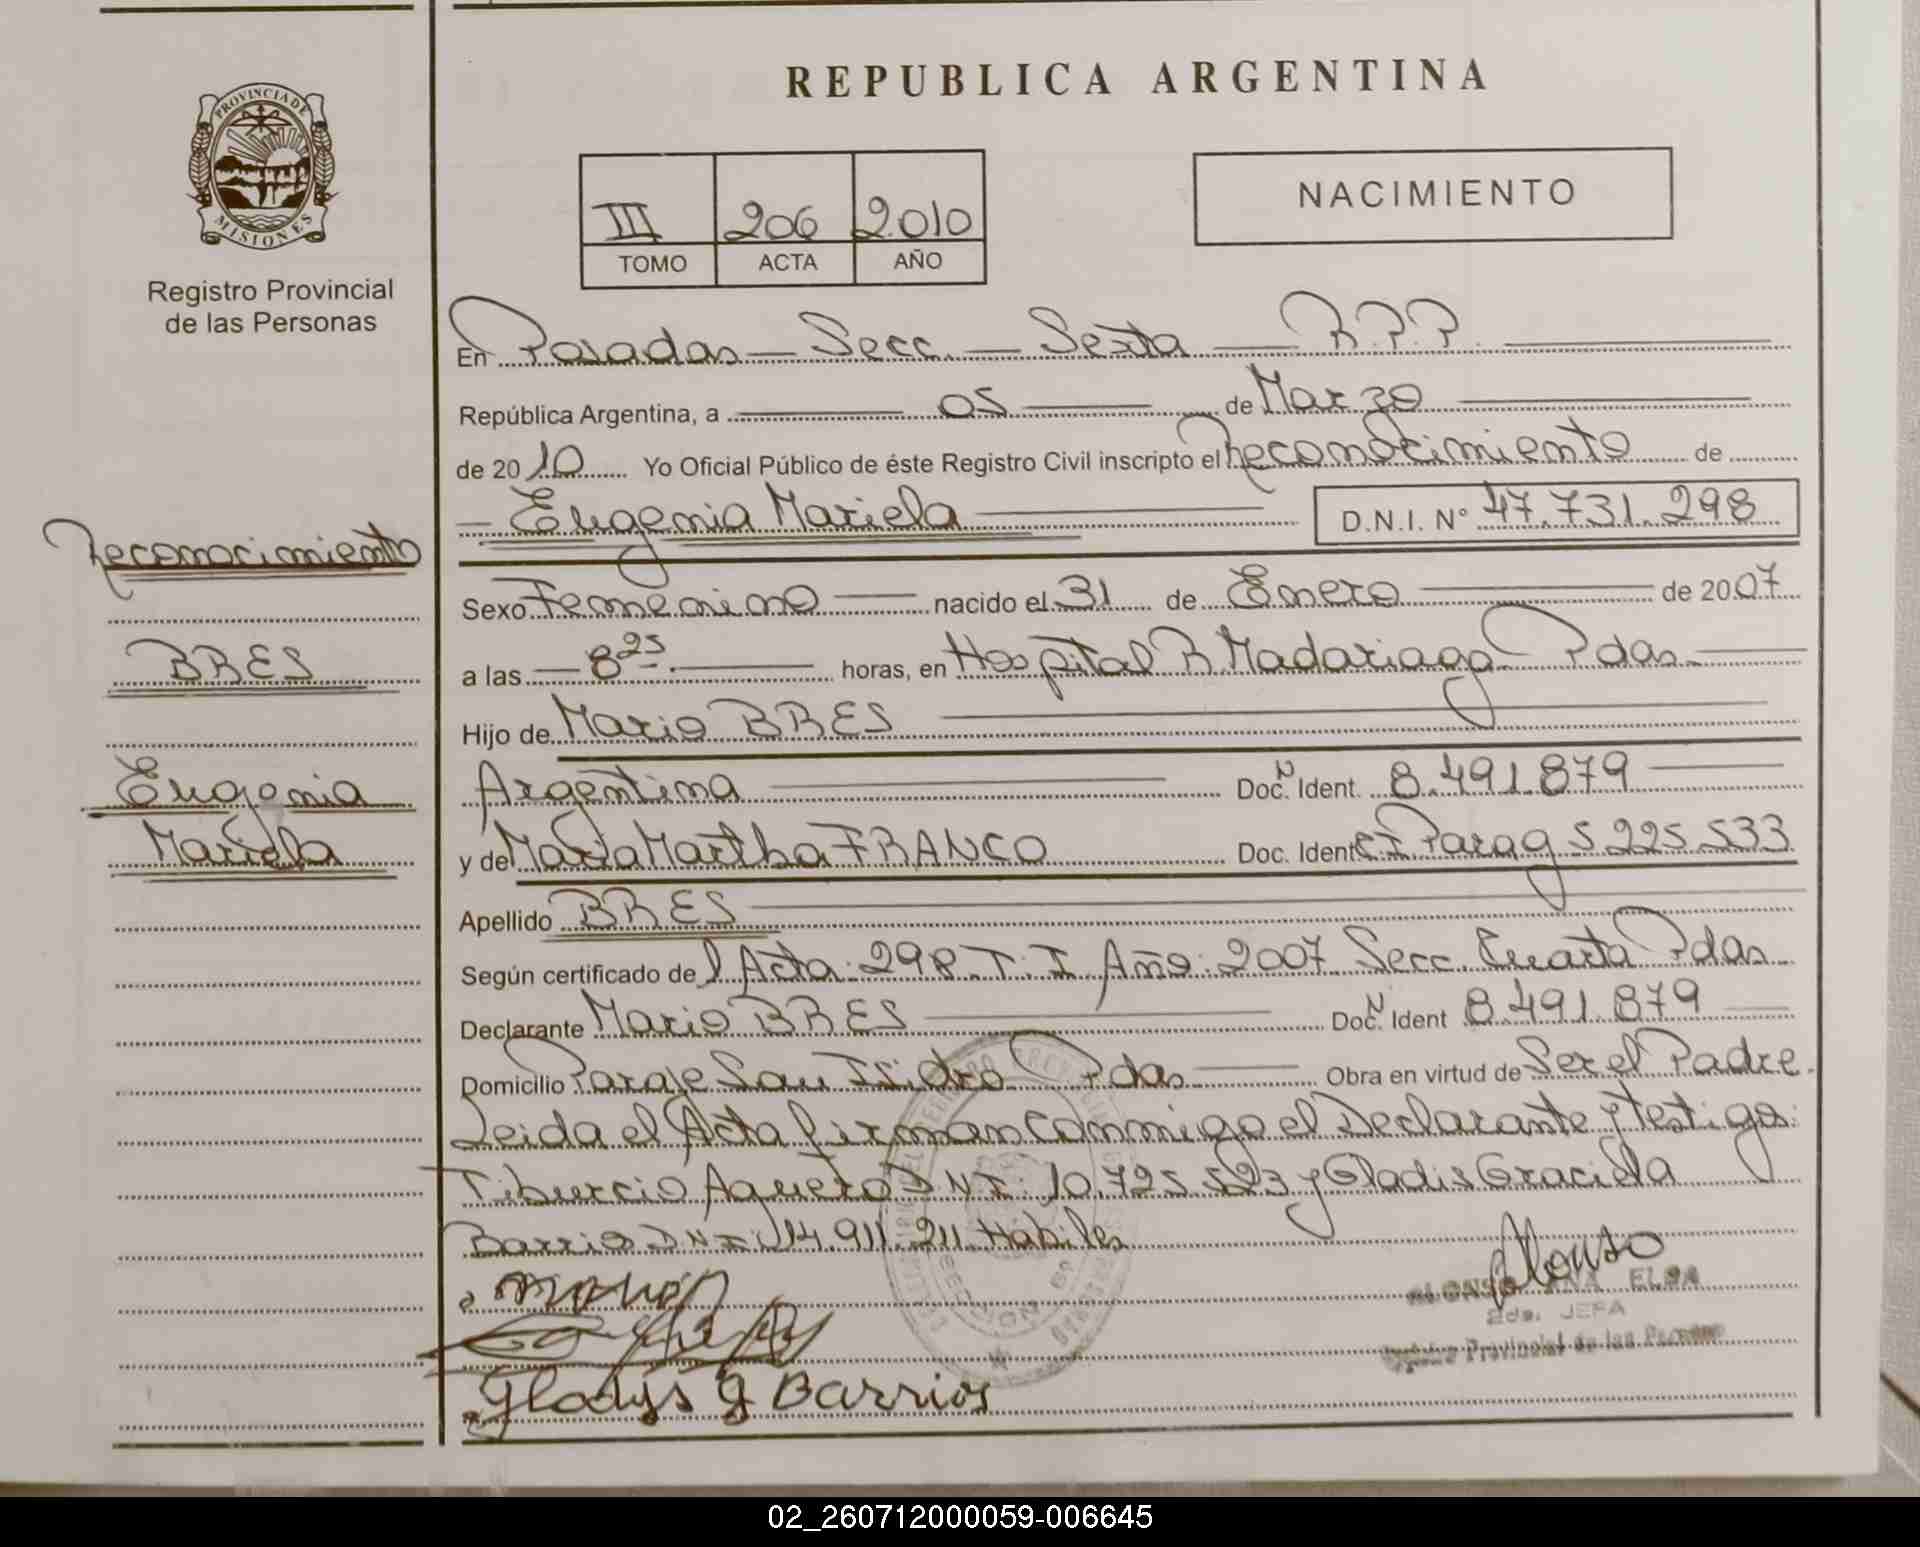 REPUBLICA ARGENTINA
PROVINCIA DE
MISIONES
Registro Provincial
de las Personas
III 206 2010
TOMO ACTA AÑO
NACIMIENTO
En Posadas - Secc. - Sexta - R.P.P.
República Argentina, a 05 de Marzo
de 2010 Yo Oficial Público de éste Registro Civil inscripto el Reconocimiento de
Eugenia Mariela D.N.I. N° 47.731.298
Reconocimiento
Sexo Femenino nacido el 31 de Enero de 2007
BRES
a las 8 25 horas, en Hospital R Madariaga Pdas
Hijo de Mario BRES
Eugenia
Argentina Doc. N Ident. 8.491.879
Mariela
y de María Martha FRANCO Doc. Ident CI Parag 5.225.533
Apellido BRES
Según certificado de l Acta 298 T. I Año 2007 Secc. Cuarta Pdas
Declarante Mario BRES Doc. N Ident 8.491.879
Domicilio Paraje San Isidro Pdas Obra en virtud de Ser el Padre.
Leida el Acta firman conmigo el Declarante y testigos:
Tiburcio Aguero DNI: 10.725.523 y Gladis Graciela
Barrios DNI: 14.911.211 Hábiles
Alonso
ALONSO ANA ELBA
2da. JEFA
Provincial de las Personas
Gladys G Barrios
02_260712000059-006645